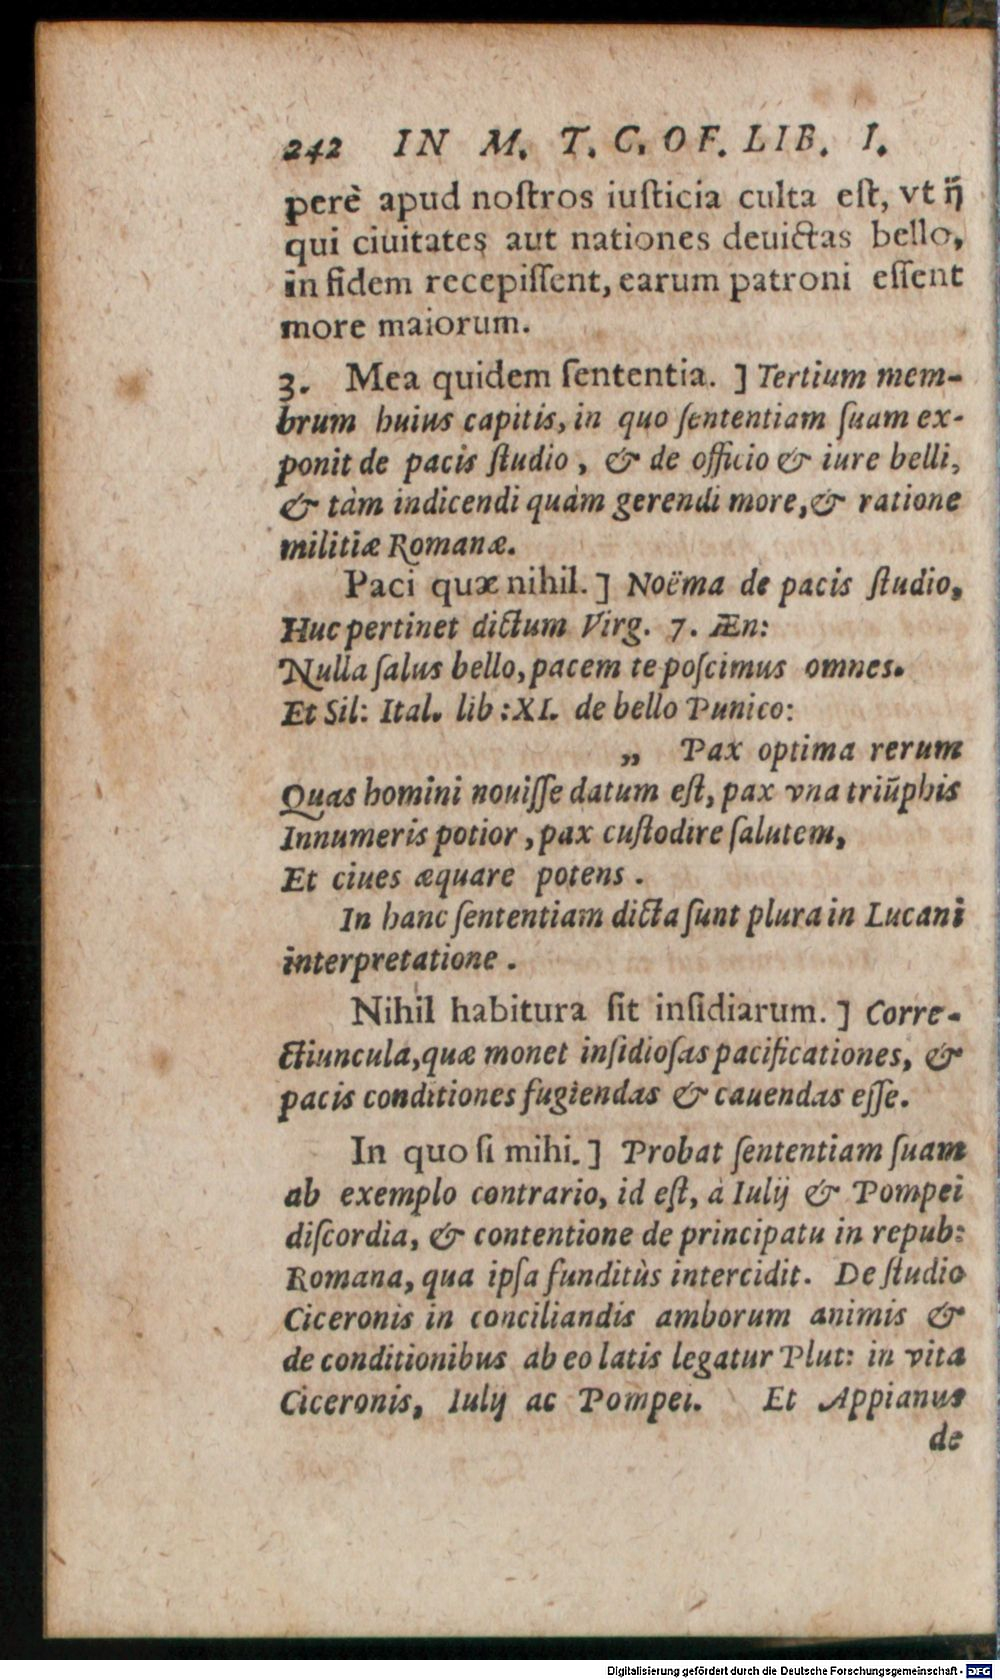 242 IN M. T. C. OF. LIB. I.
perè apud noſtros iuſticia culta eſt, vt ij̃
qui ciuitates aut nationes deuictas bello,
in fidem recepiſſent, earum patroni eſſent
more maiorum.
3. Mea quidem ſententia. ] Tertium mem-
brum huius capitis, in quo ſententiam ſuam ex-
ponit de pacis ſtudio, & de officio & iure belli,
& tàm indicendi quàm gerendi more, & ratione
militiæ Romanæ.
Paci quæ nihil. ] Noëma de pacis ſtudio,
Huc pertinet dictum Virg. 7. Æn:
Nulla ſalus bello, pacem te poſcimus omnes.
Et Sil: Ital. lib: XI. de bello Punico:
„ Pax optima rerum
Quas homini nouiſſe datum eſt, pax vna triũphis
Innumeris potior, pax cuſtodire ſalutem,
Et ciues æquare potens.
In hanc ſententiam dicta ſunt plura in Lucani
interpretatione.
Nihil habitura ſit inſidiarum. ] Corre-
ctiuncula, quæ monet inſidioſas pacificationes, &
pacis conditiones fugiendas & cauendas eſſe.
In quo ſi mihi. ] Probat ſententiam ſuam
ab exemplo contrario, id eſt, à Iulij & Pompei
diſcordia, & contentione de principatu in repub:
Romana, qua ipſa funditùs intercidit. De ſtudio
Ciceronis in conciliandis amborum animis &
de conditionibus ab eo latis legatur Plut: in vita
Ciceronis, Iulij ac Pompei. Et Appianus
de
Digitalisierung gefördert durch die Deutsche Forschungsgemeinschaft - DFG